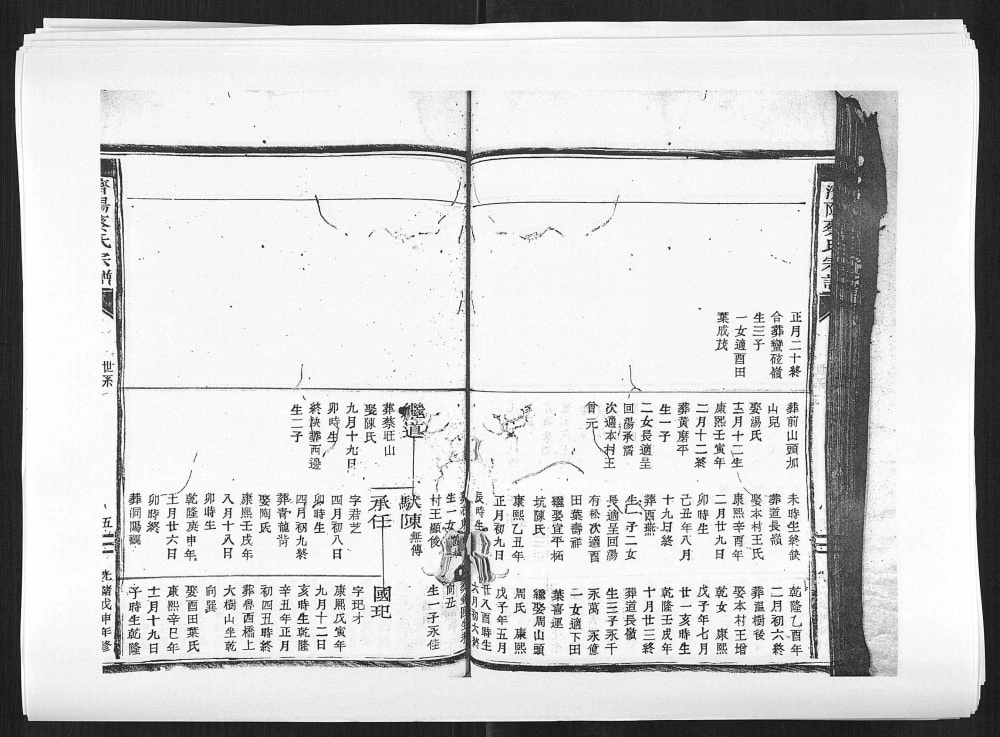 正月二十終
合葬鸞硿嶺
生三子
一女適酉田
葉成茂
葬前山頭加
山皃
娶湯氏
二月十二終
康熙壬寅年
葬黄磨平
生一子
二女長適呈
回湯承濡
次適本村王
曾元
未時生終缺
葬道長嶺
娶本村王氏
康熙辛酉年
二月廿九日
卯時生
己丑年八月
十九日終
葬酉燕
生一子二女
長適呈回湯
有松次適酉
田葉壽祥
繼娶宣平柘
坑陳氏
康熙乙丑年
正月初九日
辰時生
乾隆乙酉年
二月初六終
葬溫樹後
娶本村王增
乾女 康熙
戊子年七月
廿一亥時生
乾隆壬戌年
十月廿三終
葬道長嶺
生三子永千
永萬 永億
一女適下田
葉喜運
繼娶周山頭
周氏 康熙
戊子年五月
廿八酉時生
繼道
葬蔡旺山
娶陳氏
九月十九日
卯時生
終缺葬西邊
生二子
村王顯俊
陳 無傳
承任
字君芝
四月初八日
卯時生
四月初九終
葬青龍背
娶陶氏
康熙壬戌年
八月十八日
卯時生
乾隆庚申年
十二月廿六日
卯時終
葬洞陽觀
生一子永佳
國玘
字玘才
康熙戊寅年
九月十二日
亥時生乾隆
辛五年正月
初四丑時終
葬魯酉橋上
大樹山坐乾
向巽
娶酉田葉氏
康熙辛巳年
十一月十九日
子時生乾隆
濟陽蔡氏宗譜
世系
五
光緒戊申年修